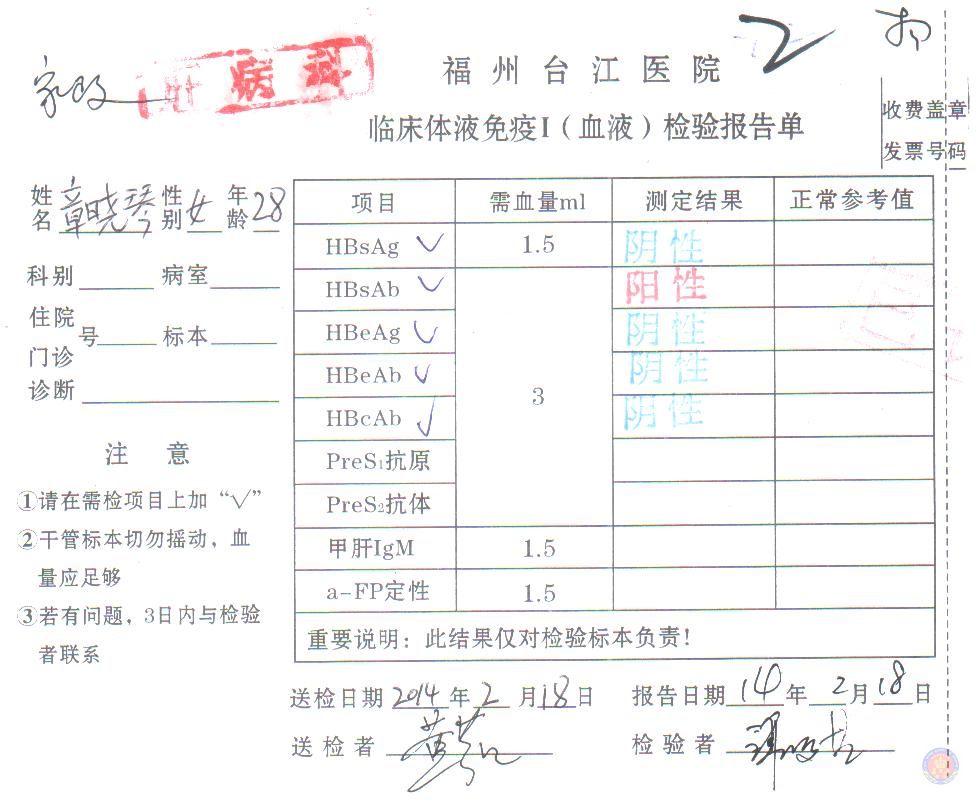 家政
病科
福州台江医院
临床体液免疫I（血液）检验报告单
收费盖章
发票号码
姓名 章晓琴 性别 女 年龄 28
科别 病室
住院
门诊 号 标本
诊断
注意
①请在需检项目上加“√”
②干管标本切勿摇动，血
量应足够
③若有问题，3日内与检验
者联系
项目 需血量ml 测定结果 正常参考值
HBsAg √ 1.5 阴性
HBsAb √ 3 阳性
HBeAg √ 阴性
HBeAb √ 阴性
HBcAb √ 阴性
PreS₁抗原
PreS₂抗体
甲肝IgM 1.5
a-FP定性 1.5
重要说明：此结果仅对检验标本负责！
送检日期 2014 年 2 月 18 日 报告日期 14 年 2 月 18 日
送检者 检验者